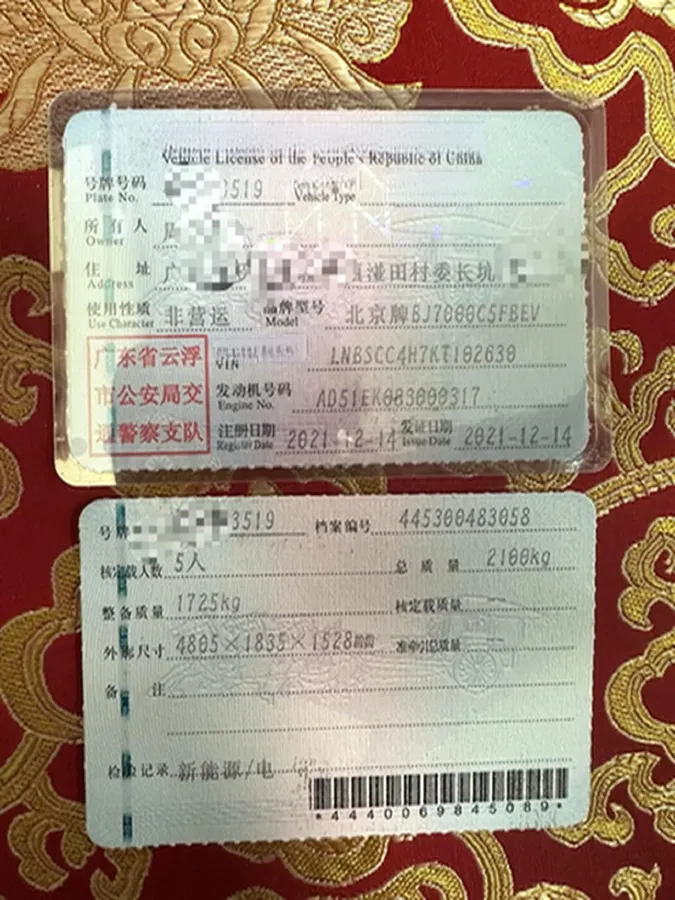 Vehicle License of the People's Republic of China
号牌号码 3519
Plate No. Vehicle Type
所有人
Owner
住 址 镇湴田村委长坑
Address
使用性质 非营运 品牌型号 北京牌BJ7000C5FBEV
Use Character Model
LNBSCC4H7KT102630
VIN
发动机号码 AD51EK083000317
Engine No.
注册日期 2021-12-14 发证日期 2021-12-14
Register Date Issue Date
广东省云浮
市公安局交
通警察支队
号牌 3519 档案编号 445300483058
核定载人数 5人 总质量 2100kg
整备质量 1725kg 核定载质量
外廓尺寸 4805×1835×1528 准牵引总质量
备 注
检验记录 新能源/电
*4440069845089*